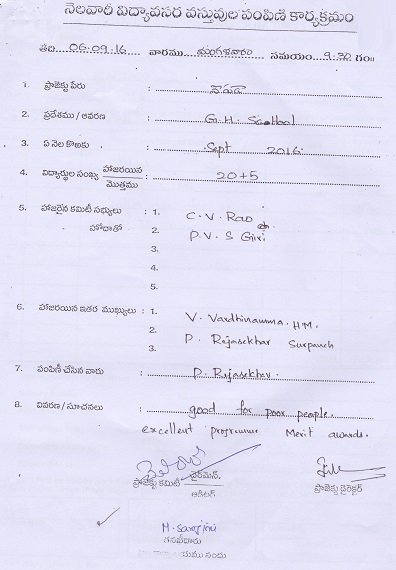 నెలవారీ విద్యావసర వస్తువుల పంపిణి కార్యక్రమం
తేది 06.09.16 వారము మంగళవారం సమయం 9:30 గం॥
1. ప్రాజెక్టు పేరు :
2. ప్రదేశము / ఆవరణ : G.H. School
3. ఏ నెల కొఱకు : Sept 2016
4. విద్యార్థుల సంఖ్య హాజరయిన / మొత్తము : 20+5
5. హాజరైన కమిటీ సభ్యులు : 1. C.V. Rao
హోదాతో 2. P.V.S Giri
3.
4.
5.
6. హాజరయిన ఇతర ముఖ్యులు : 1. V. Vardhinamma. HM.
2. P. Rajasekhar Surpanch
3.
7. పంపిణీ చేసిన వారు : P. Rajasekhar.
8. వివరణ / సూచనలు : good for poor people.
excellent programme Merit awards.
ప్రాజెక్టు కమిటీ ఛైర్మెన్.
ఆడిటర్
ప్రాజెక్టు డైరెక్టర్
M. Sarojini